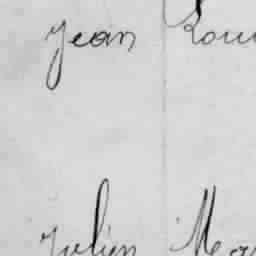 Jean Loui
Julien Mar